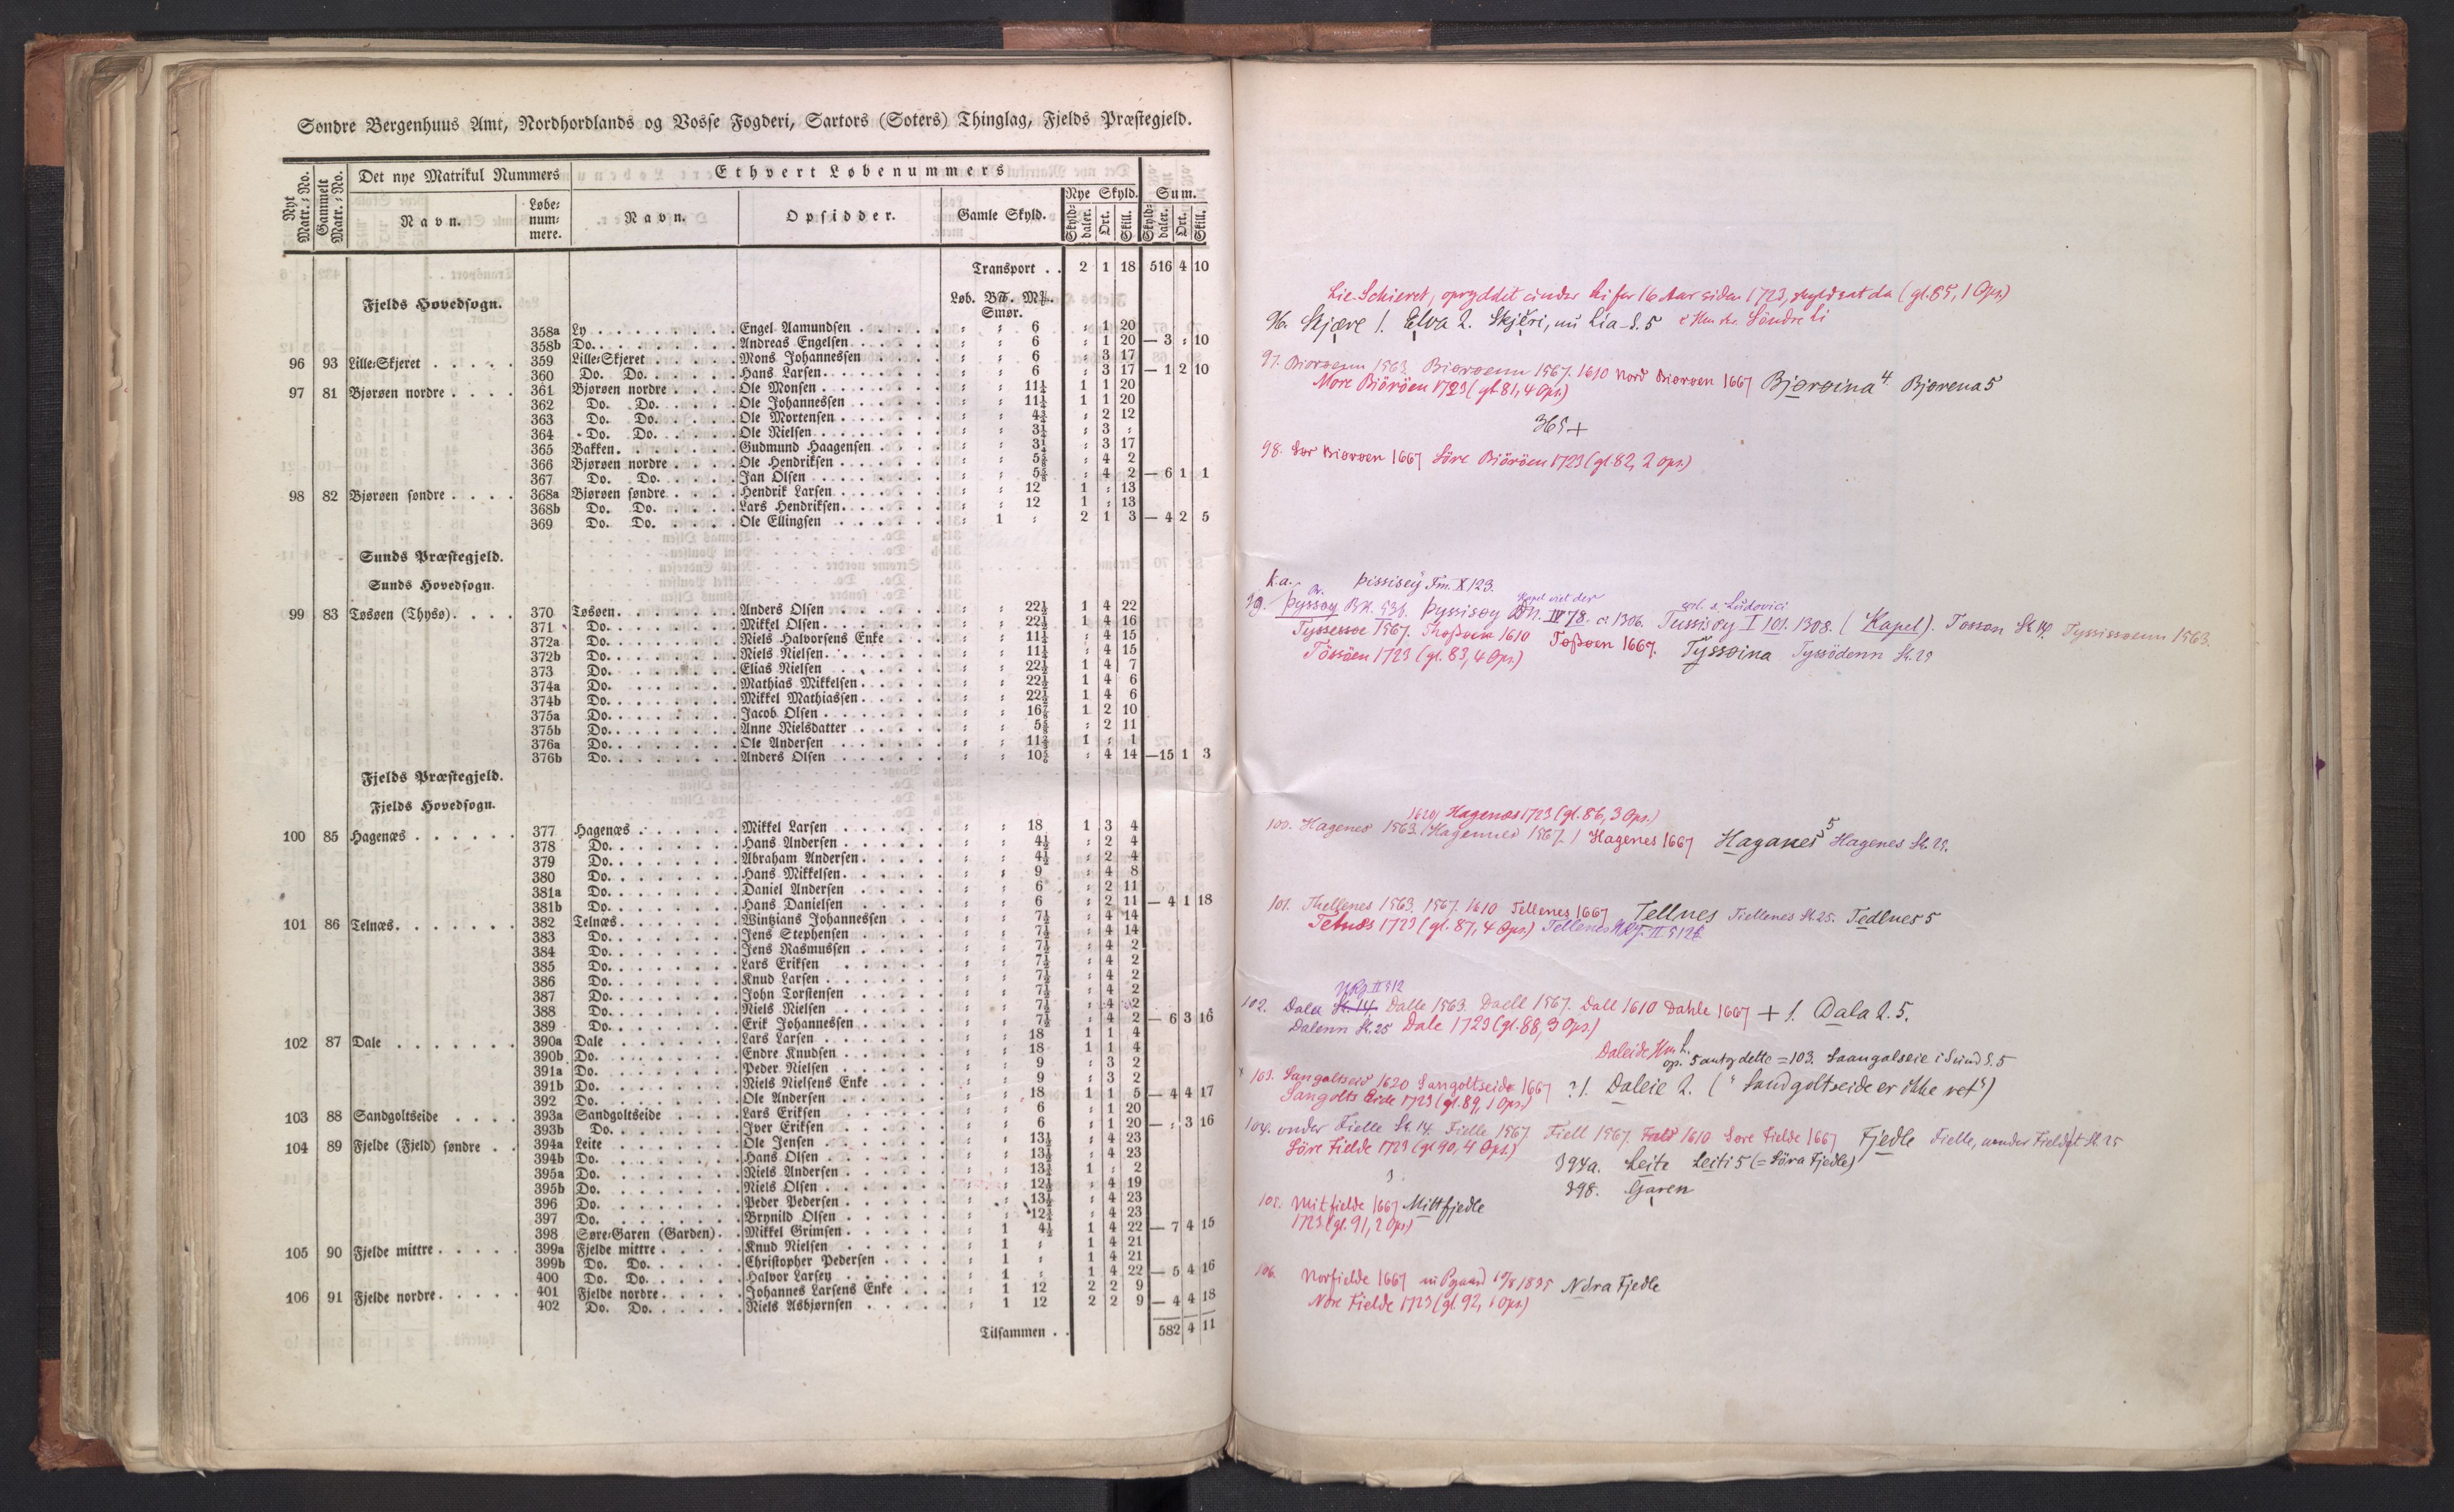 Søndre Bergenhuus Amt, Nordhordlands og Vosse Fogderi, Sartors (Soters) Thinglag, Fjelds Præstegjeld.
Nye Matr.-No. Gammelt Matr.-No. Det nye Matrikul Nummers Ethvert Løbenummers
Navn. Løbe-nummere. Navn. Opsidder. Gamle Skyld. Nye Skyld. Sum.
Skylddaler. Ort. Skill. Skylddaler. Ort. Skill.
Transport . . 2 1 18 516 4 10
Fjelds Hovedsogn. Løb. B℔. M℔. Smør.
358a Ly Engel Aamundsen : : 6 : 1 20
358b Do. Andreas Engelsen : : 6 : 1 20 — 3 : 10
96 93 Lille-Skjeret 359 Lille-Skjeret Mons Johannessen : : 6 : 3 17
360 Do. Do. Hans Larsen : : 6 : 3 17 — 1 2 10
97 81 Bjørøen nordre 361 Bjørøen nordre Ole Monsen : : 11¼ 1 1 20
362 Do. Do. Ole Johannessen : : 11¼ 1 1 20
363 Do. Do. Ole Mortensen : : 4¾ : 2 12
364 Do. Do. Ole Nielsen : : 3¾ : 3 :
365 Bakken Gudmund Haagensen : : 3¾ : 3 17
366 Bjørøen nordre Ole Hendriksen : : 5⅝ : 4 2
367 Do. Do. Jan Olsen : : 5⅝ : 4 2 — 6 1 1
98 82 Bjørøen søndre 368a Bjørøen søndre Hendrik Larsen : : 12 1 : 13
368b Do. Do. Lars Hendriksen : : 12 1 : 13
369 Do. Do. Ole Ellingsen : 1 : 2 1 3 — 4 2 5
Sunds Præstegjeld.
Sunds Hovedsogn.
99 83 Tøsøen (Thysø) 370 Tøsøen Anders Olsen : : 22½ 1 4 22
371 Do. Mikkel Olsen : : 22½ 1 4 16
372a Do. Niels Halvorsens Enke : : 11¼ : 4 15
372b Do. Niels Nielsen : : 11¼ : 4 15
373 Do. Elias Nielsen : : 22½ 1 4 7
374a Do. Mathias Mikkelsen : : 22½ 1 4 6
374b Do. Mikkel Mathiassen : : 22½ 1 4 6
375a Do. Jacob Olsen : : 16⅞ 1 2 10
375b Do. Anne Nielsdatter : : 5⅝ : 2 11
376a Do. Ole Andersen : : 11⅔ 1 : 1
376b Do. Anders Olsen : : 10⅚ : 4 14 — 15 1 3
Fjelds Præstegjeld.
Fjelds Hovedsogn.
100 85 Hagenæs 377 Hagenæs Mikkel Larsen : : 18 1 3 4
378 Do. Hans Andersen : : 4½ : 2 4
379 Do. Abraham Andersen : : 4½ : 2 4
380 Do. Hans Mikkelsen : : 9 : 4 8
381a Do. Daniel Andersen : : 6 : 2 11
381b Do. Hans Danielsen : : 6 : 2 11 — 4 1 18
101 86 Telnæs 382 Telnæs Wintzians Johannessen : : 7½ : 4 14
383 Do. Jens Stephensen : : 7½ : 4 14
384 Do. Jens Rasmussen : : 7½ : 4 2
385 Do. Lars Eriksen : : 7½ : 4 2
386 Do. Knud Larsen : : 7½ : 4 2
387 Do. John Torstensen : : 7½ : 4 2
388 Do. Niels Nielsen : : 7½ : 4 2
389 Do. Erik Johannessen : : 7½ : 4 2 — 6 3 16
102 87 Dale 390a Dale Lars Larsen : : 18 1 1 4
390b Do. Endre Knudsen : : 18 1 1 4
391a Do. Peder Nielsen : : 9 : 3 2
391b Do. Niels Nielsens Enke : : 9 : 3 2
392 Do. Ole Andersen : : 18 1 1 5 — 4 4 17
103 88 Sandgoltseide 393a Sandgoltseide Lars Eriksen : : 6 : 1 20
393b Do. Iver Eriksen : : 6 : 1 20 — : 3 16
104 89 Fjelde (Fjeld) søndre 394a Leite Ole Jensen : : 13½ : 4 23
394b Do. Hans Olsen : : 13½ : 4 23
395a Do. Niels Andersen : : 13¾ 1 : 2
395b Do. Niels Olsen : : 12½ : 4 19
396 Do. Peder Pedersen : : 13½ : 4 23
397 Do. Brynild Olsen : : 12¾ : 4 23
398 Søre-Garen (Garden) Mikkel Grimsen : 1 4½ 1 4 22 — 7 4 15
105 90 Fjelde mittre 399a Fjelde mittre Knud Nielsen : 1 : 1 4 21
399b Do. Do. Christopher Pedersen : 1 : 1 4 21
400 Do. Do. Halvor Larsen : 1 : 1 4 22 — 5 4 16
106 91 Fjelde nordre 401 Fjelde nordre Johannes Larsens Enke : 1 12 2 2 9
402 Do. Do. Niels Asbjørnsen : 1 12 2 2 9 — 4 4 18
Tilsammen . . 582 4 11
Lie-Schieret, opryddet under Li for 16 Aar siden 1723, skyldsat da (gl. 85, 1 Ops.)
96. Skjære 1. Elva 2. Skjèri, nú Lia - S. 5 Søndre Li
97. Biorøenn 1563. Biorøenn 1567. 1610 Nord Biøroen 1667 Bjøroina 4. Bjørena 5
Nore Biöröen 1723 (gl. 81, 4 Ops.)
365 +
98. Sør Biøroen 1667 Söre Biöröen 1723 (gl. 82, 2 Ops.)
k.a. Þissisey Fm. X 123.
99. Þyssøy BK. 53b. Þyssisøy DN. IV 78. c. 1306. Tussisøy I 101. 1308. (Kapel). Tosson St. 14. Tyssissøenn 1563.
Tyssessøe 1567. Thoßøen 1610 Toßøen 1667. Tyssøina Tyssödenn St. 25
Tössöen 1723 (gl. 83, 4 Ops.)
1620) Hagenæs 1723 (gl. 86, 3 Ops.)
100. Hagenes 1563. (Hagennes 1567.) Hagenes 1667 Haganes 5 Hagenes St. 25.
101. Thellenes 1563. 1567. 1610 Tellenes 1667 Tellnes Tiellenes St. 25. Tedlnes 5
Telnæs 1723 (gl. 87, 4 Ops.) Tellenes NRJ. II 512
NRJ. II 512
102. Dala St. 14. Dalle 1563. Daell 1567. Dall 1610 Dahle 1667 + 1. Dala 2. 5.
Dalenn St. 25 Dale 1723 (gl. 88, 3 Ops.)
Daleide Hmk.
op. 5 antog dette = 103. Saangalseie i Sund S. 5
103. Sangaltseid 1620 Sangoltseide 1667 ? 1. Daleie 2. ("Sandgoltseide er ikke ret")
Sangolts Eide 1723 (gl. 89, 1 Ops.)
104. under Fielle St. 14. Fielle 1567. Fiell 1567. 1610 Søre Fielde 1667 Fjedle Fielle, under Fieldet St. 25
Söre Fielde 1723 (gl. 90, 4 Ops.)
394a. Leite Leiti 5 (= Söra Fjedle)
398. Garen
105. Mitfielde 1667 Mittfjedle
1723 (gl. 91, 2 Ops.)
106. Norfielde 1667 Nóra Fjedle
Nore Fielde 1723 (gl. 92, 1 Ops.)